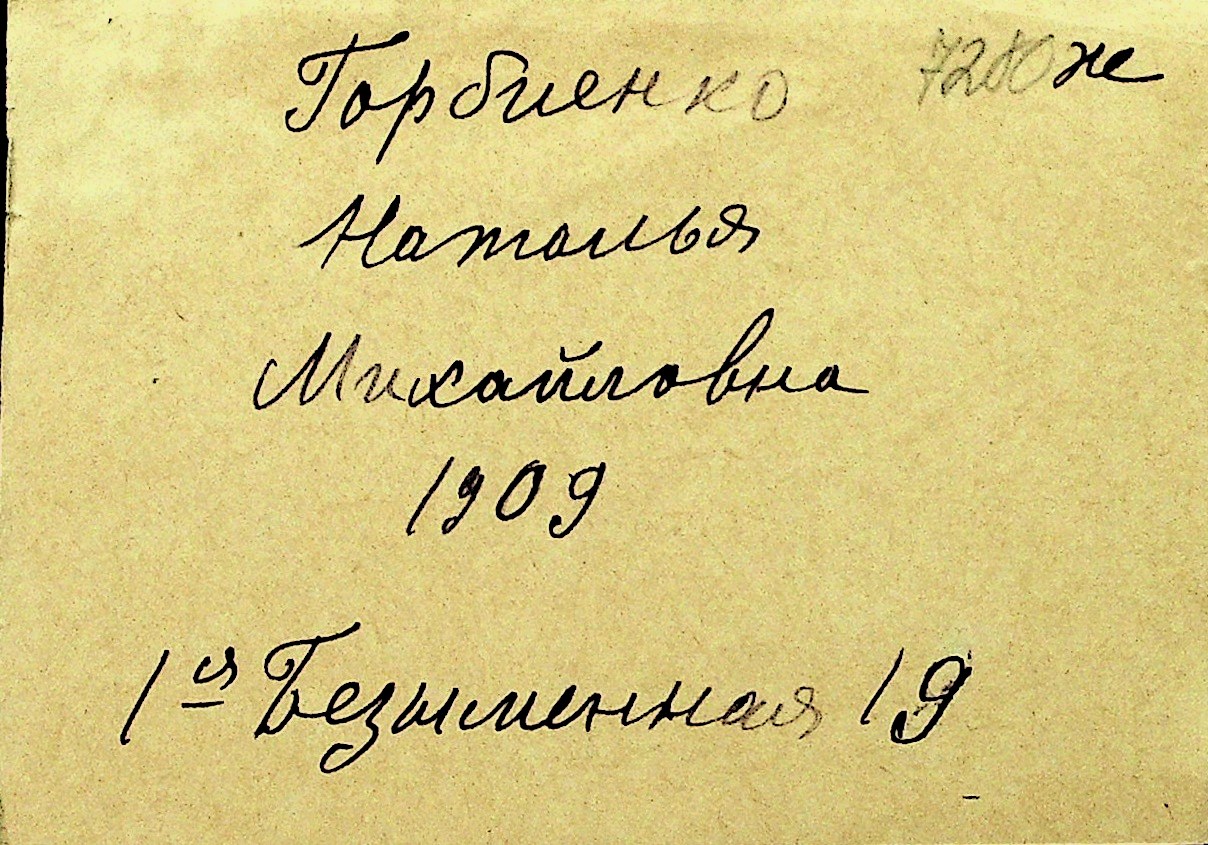 Горбиенко 7200 ж
Наталья
Михайловна
1909
1я Безыменная 19